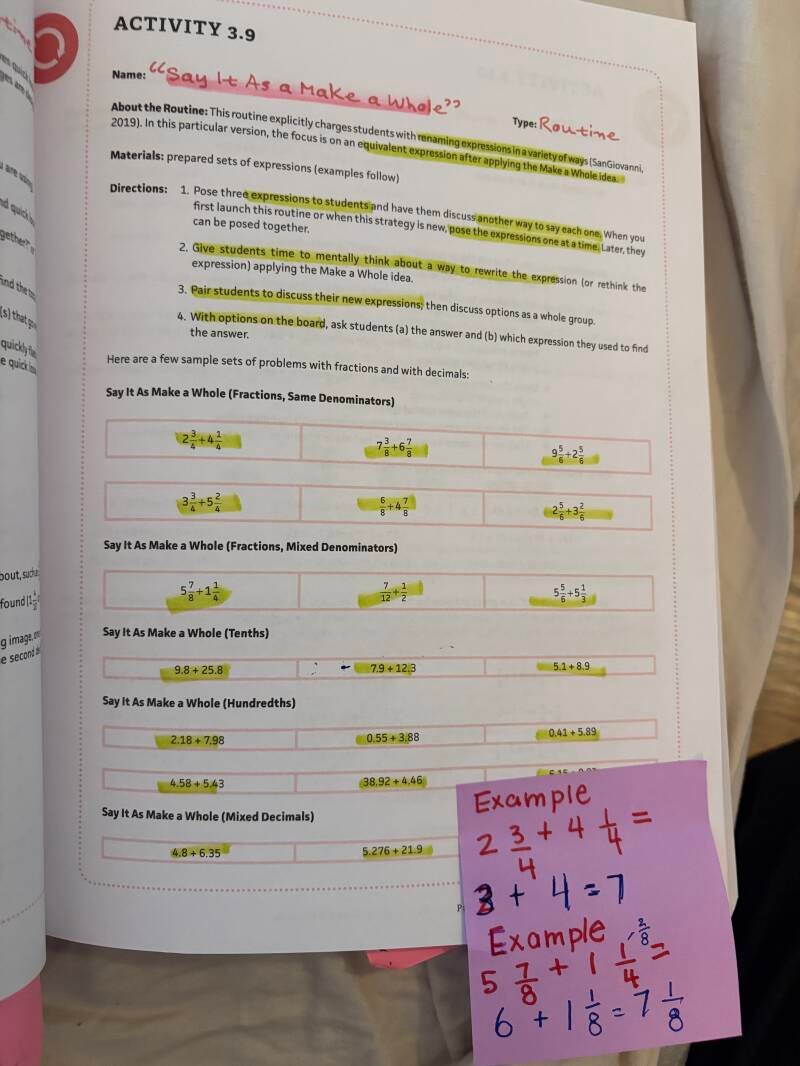 ACTIVITY 3.9
Name: “Say It As a Make a Whole”
Type: Routine
About the Routine: This routine explicitly charges students with renaming expressions in a variety of ways (SanGiovanni,
2019). In this particular version, the focus is on an equivalent expression after applying the Make a Whole idea.
Materials: prepared sets of expressions (examples follow)
Directions: 1. Pose three expressions to students and have them discuss another way to say each one. When you
first launch this routine or when this strategy is new, pose the expressions one at a time. Later, they
can be posed together.
2. Give students time to mentally think about a way to rewrite the expression (or rethink the
expression) applying the Make a Whole idea.
3. Pair students to discuss their new expressions; then discuss options as a whole group.
4. With options on the board, ask students (a) the answer and (b) which expression they used to find
the answer.
Here are a few sample sets of problems with fractions and with decimals:
Say It As Make a Whole (Fractions, Same Denominators)
2 3/4 + 4 1/4 7 3/8 + 6 7/8 9 5/6 + 2 5/6
3 3/4 + 5 2/4 6/8 + 4 7/8 2 5/6 + 3 2/6
Say It As Make a Whole (Fractions, Mixed Denominators)
5 7/8 + 1 1/4 7/12 + 1/2 5 5/6 + 5 1/3
Say It As Make a Whole (Tenths)
9.8 + 25.8 7.9 + 12.3 5.1 + 8.9
Say It As Make a Whole (Hundredths)
2.18 + 7.98 0.55 + 3.88 0.41 + 5.89
4.58 + 5.43 38.92 + 4.46
Say It As Make a Whole (Mixed Decimals)
4.8 + 6.35 5.276 + 21.9
Example
2 3/4 + 4 1/4 =
3 + 4 = 7
Example
5 7/8 + 1 1/4 = 2/8
6 + 1 1/8 = 7 1/8